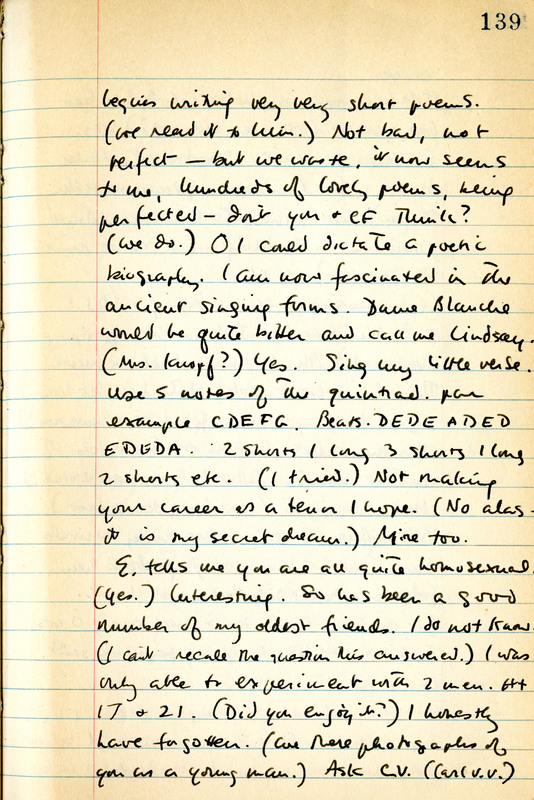 139
begins writing very very short poems.
(We read it to him.) Not bad, not
perfect — but we waste, it now seems
to me, hundreds of lovely poems, being
perfected — don't you & EF think?
(We do.) O I could dictate a poetic
biography. I am now fascinated in the
ancient singing forms. Dame Blanche
would be quite bitter and call me Lindsay.
(Mrs. Knopf?) Yes. Sing my little verse.
Use 5 notes of the quintad. par
example CDEFG. Beats. DEDE ADED
EDEDA. 2 shorts 1 long 3 shorts 1 long
2 shorts etc. (I tried.) Not making
your career as a tenor I hope. (No alas -
it is my secret dream.) Mine too.
E. tells me you are all quite homosexual.
(Yes.) Interesting. So has been a good
number of my oldest friends. I do not know.
(I can't recall the question this answered.) I was
only able to experiment with 2 men. At
17 & 21. (Did you enjoy it?) I honestly
have forgotten. (Are there photographs of
you as a young man.) Ask C.V. ((Carl V.V.)